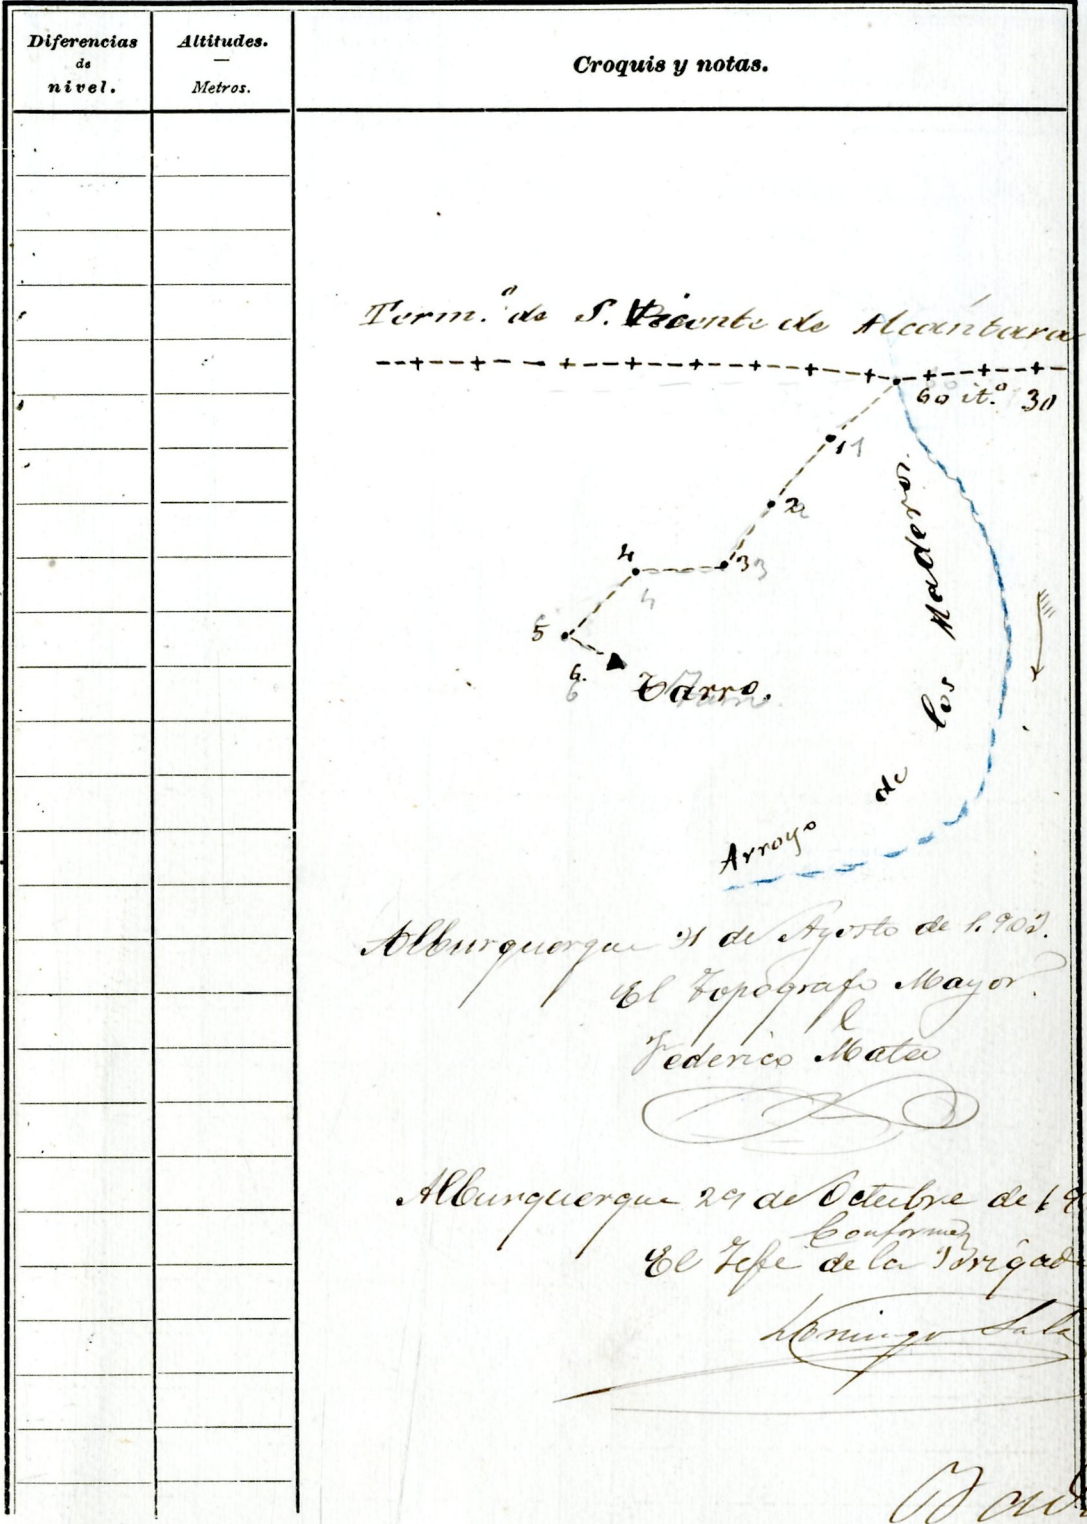 Diferencias
de
nivel.
Altitudes.
Metros.
Croquis y notas.
Term.º de S. Vicente de Alcántara
60 it.º 30
1 1
2 2
3 3
4
4
5
6.
6
Zarro.
Arroyo de los Maderos
Alburquerque 31 de Agosto de 1.902.
El Topógrafo Mayor
Federico Mateo
Alburquerque 29 de Octubre de 19
Conforme
El Jefe de la Brigada
Domingo Sala